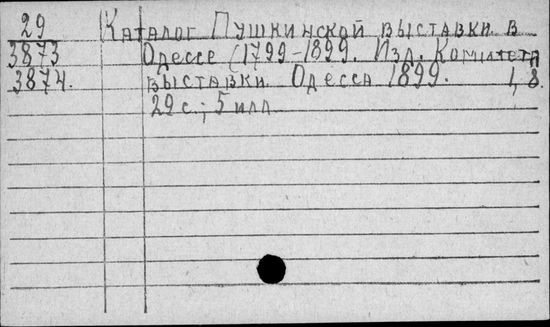 29 Каталог Пушкинской выставки в
3873 Одессе (1799-1899. Изд. Комитета
3874. выставки. Одесса 1899. 1, 8.
29 с.; 5 илл